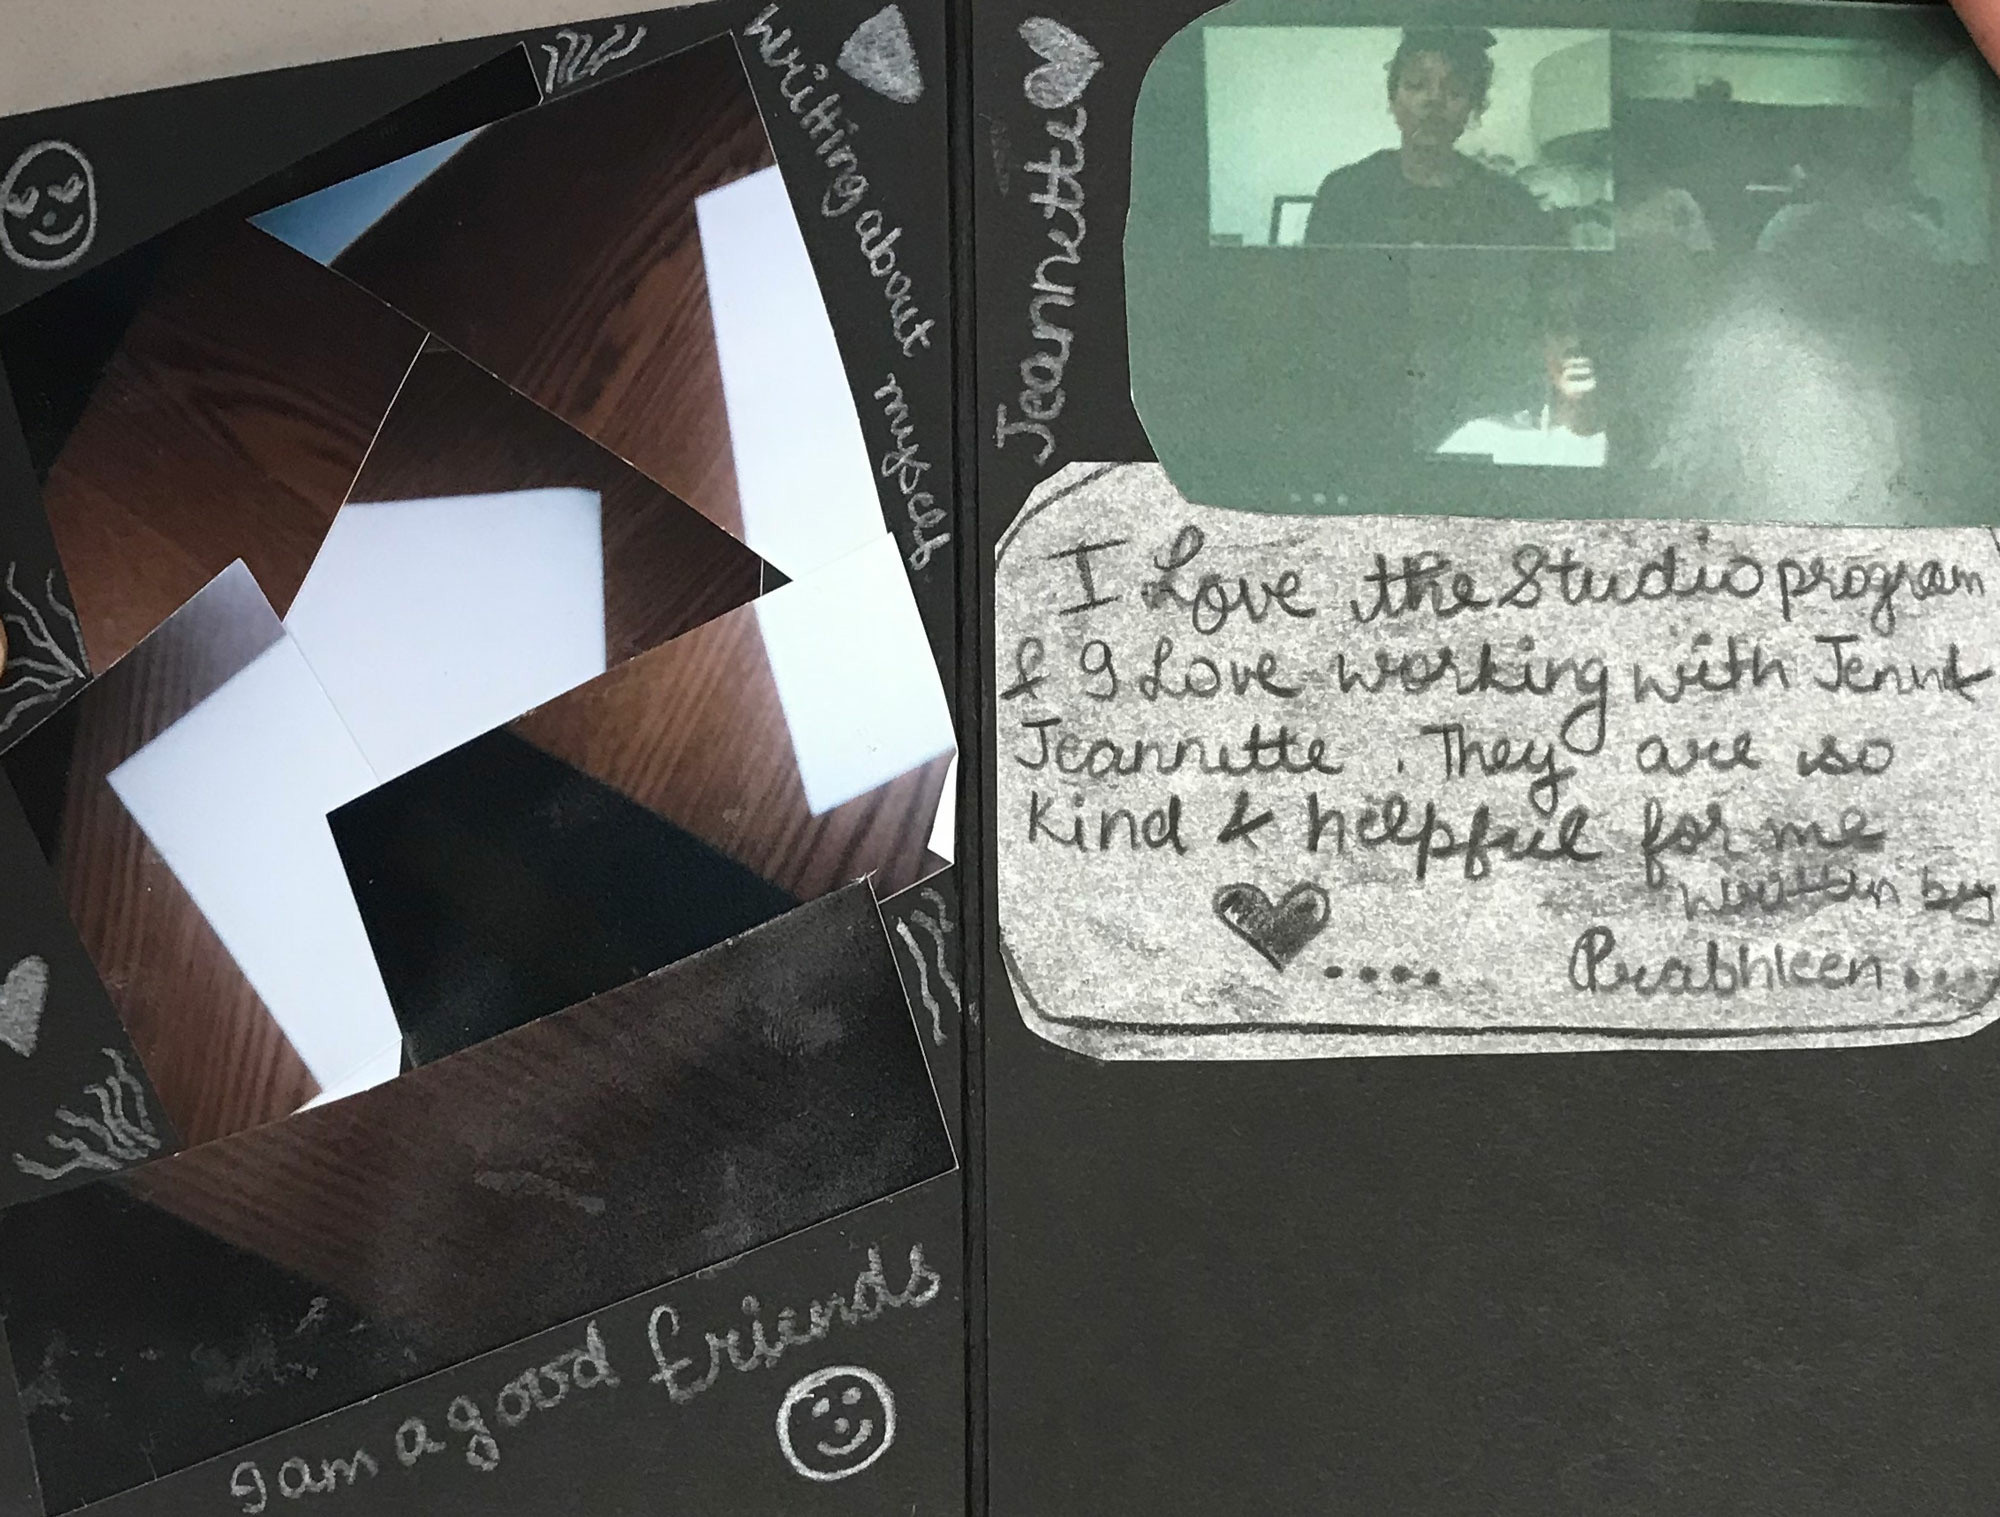 writting about myself
I am a good friends
Jeannette
I Love the Studio program
& I Love working with Jenn &
Jeannette. They are so
Kind & helpful for me
written by
Prabhleen....